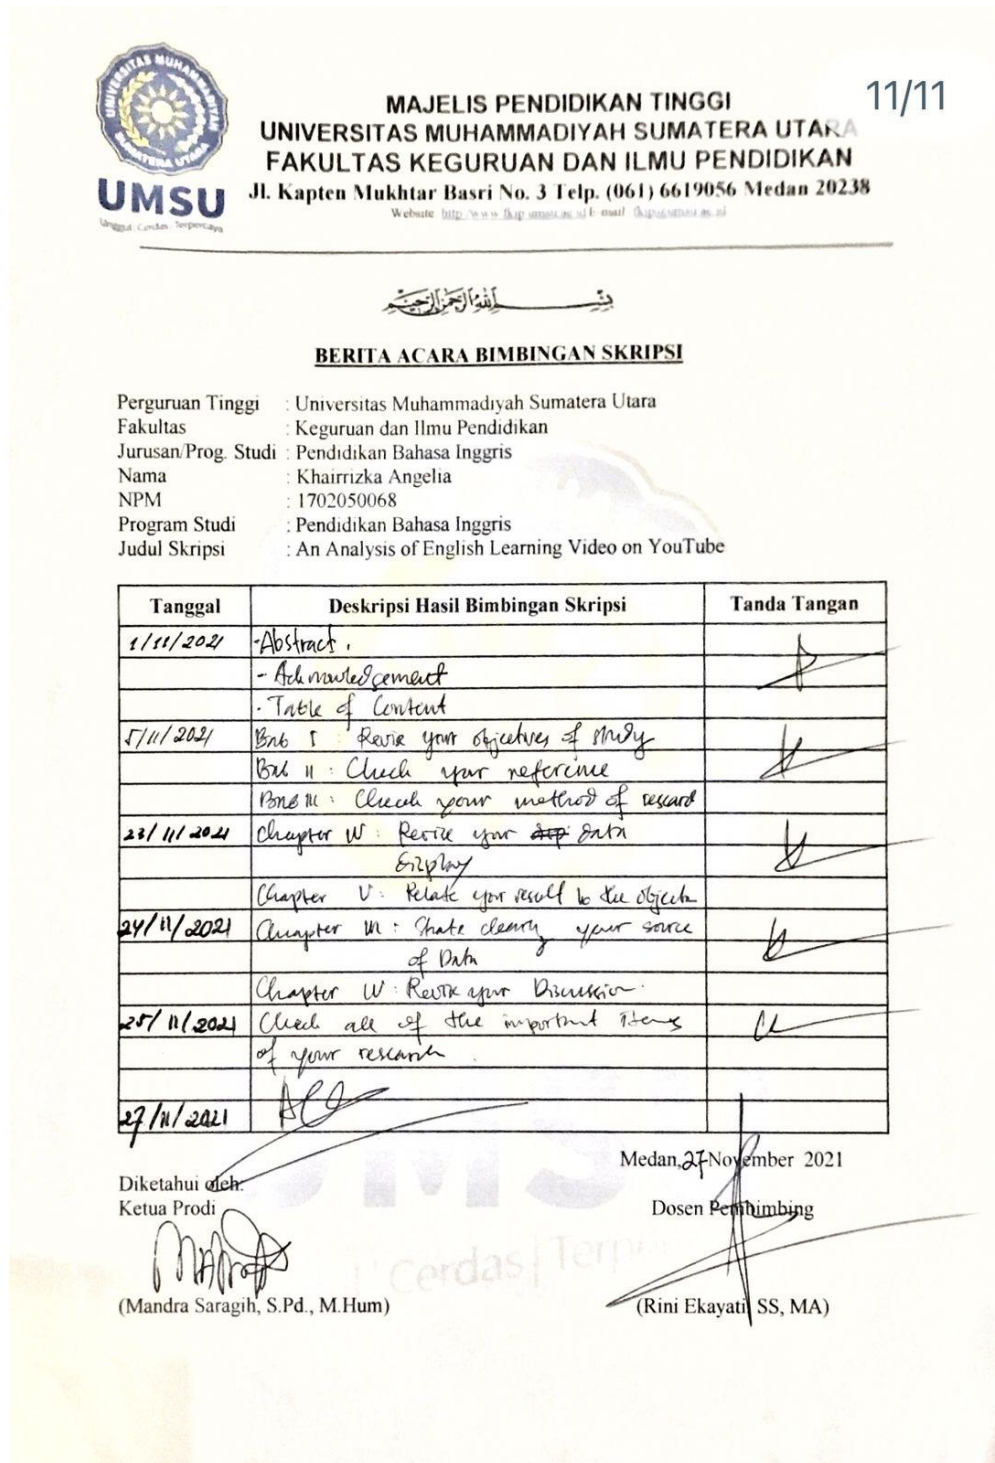 11/11
UNIVERSITAS MUHAMMADIYAH
SUMATERA UTARA
UMSU
Unggul | Cerdas | Terpercaya
MAJELIS PENDIDIKAN TINGGI
UNIVERSITAS MUHAMMADIYAH SUMATERA UTARA
FAKULTAS KEGURUAN DAN ILMU PENDIDIKAN
Jl. Kapten Mukhtar Basri No. 3 Telp. (061) 6619056 Medan 20238
Website http://www.fkip.umsu.ac.id E-mail fkip@umsu.ac.id
بِسْمِ اللهِ الرَّحْمٰنِ الرَّحِيْمِ
BERITA ACARA BIMBINGAN SKRIPSI
Perguruan Tinggi : Universitas Muhammadiyah Sumatera Utara
Fakultas : Keguruan dan Ilmu Pendidikan
Jurusan/Prog. Studi : Pendidikan Bahasa Inggris
Nama : Khairrizka Angelia
NPM : 1702050068
Program Studi : Pendidikan Bahasa Inggris
Judul Skripsi : An Analysis of English Learning Video on YouTube
Tanggal Deskripsi Hasil Bimbingan Skripsi Tanda Tangan
1/11/2021 - Abstract.
- Acknowledgement
- Table of Content
5/11/2021 Bab I : Revise your objectives of study
Bab II : Check your reference
Bab III : Check your method of research
23/11/2021 Chapter IV : Revise your data
display
Chapter V : Relate your result to the objects
24/11/2021 Chapter III : State clearly your source
of Data
Chapter IV : Revise your Discussion.
25/11/2021 Check all of the important items
of your research.
27/11/2021
Medan, 27 November 2021
Diketahui oleh:
Ketua Prodi Dosen Pembimbing
UMSU
Cerdas | Terpe
(Mandra Saragih, S.Pd., M.Hum) (Rini Ekayati, SS, MA)